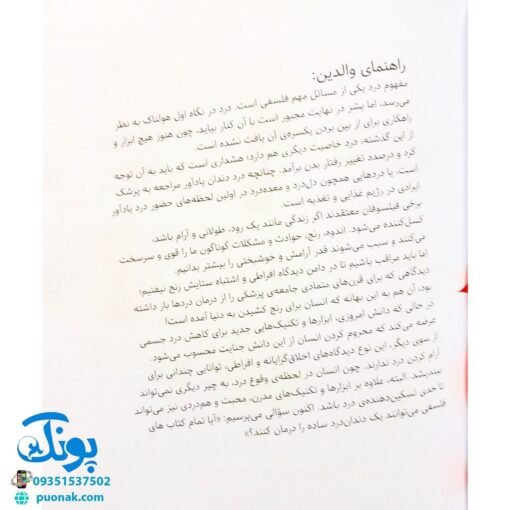 راهنمای والدین:
مفهوم درد یکی از مسائل مهم فلسفی است. درد در نگاه اول هولناک به نظر
می‌رسد، اما بشر در نهایت مجبور است با آن کنار بیاید، چون هنوز هیچ ابزار و
راهکاری برای از بین بردن یکسره‌ی آن یافت نشده است.
از این گذشته، درد خاصیت دیگری هم دارد: هشداری است که باید به آن توجه
کرد و درصدد تغییر رفتار بدن برآمد. چنانچه درد دندان یادآور مراجعه به پزشک
است، یا دردهایی همچون دل‌درد و معده‌درد در اولین لحظه‌های حضور درد یادآور
ایرادی در رژیم غذایی و تغذیه است.
برخی فیلسوفان معتقدند اگر زندگی مانند یک رود، طولانی و آرام باشد،
کسل‌کننده می‌شود. اندوه، رنج، حوادث و مشکلات گوناگون ما را قوی و سرسخت
می‌کنند و سبب می‌شوند قدر آرامش و خوشبختی را بیشتر بدانیم.
اما باید مراقب باشیم تا در دامن دیدگاه افراطی و اشتباه ستایش رنج نیفتیم؛
دیدگاهی که برای قرن‌های متمادی جامعه‌ی پزشکی را از درمان دردها باز داشته
بود، آن هم به این بهانه که انسان برای رنج کشیدن به دنیا آمده است!
در حالی که دانش امروزی، ابزارها و تکنیک‌هایی جدید برای کاهش درد جسمی
عرضه می‌کند که محروم کردن انسان از این دانش جنایت محسوب می‌شود.
از سوی دیگر، این نوع دیدگاه‌های اخلاق‌گرایانه و افراطی، توانایی چندانی برای
آرام کردن درد ندارند. چون انسان در لحظه‌ی وقوع درد، به چیز دیگری نمی‌تواند
بیندیشد. البته، علاوه بر ابزارها و تکنیک‌های مدرن، محبت و هم‌دردی نیز می‌تواند
تا حدی تسکین‌دهنده‌ی درد باشد. اکنون سؤالی می‌پرسیم: «آیا تمام کتاب های
فلسفی می‌توانند یک دندان‌درد ساده را درمان کنند؟»
پونک
09351537502
puonak.com